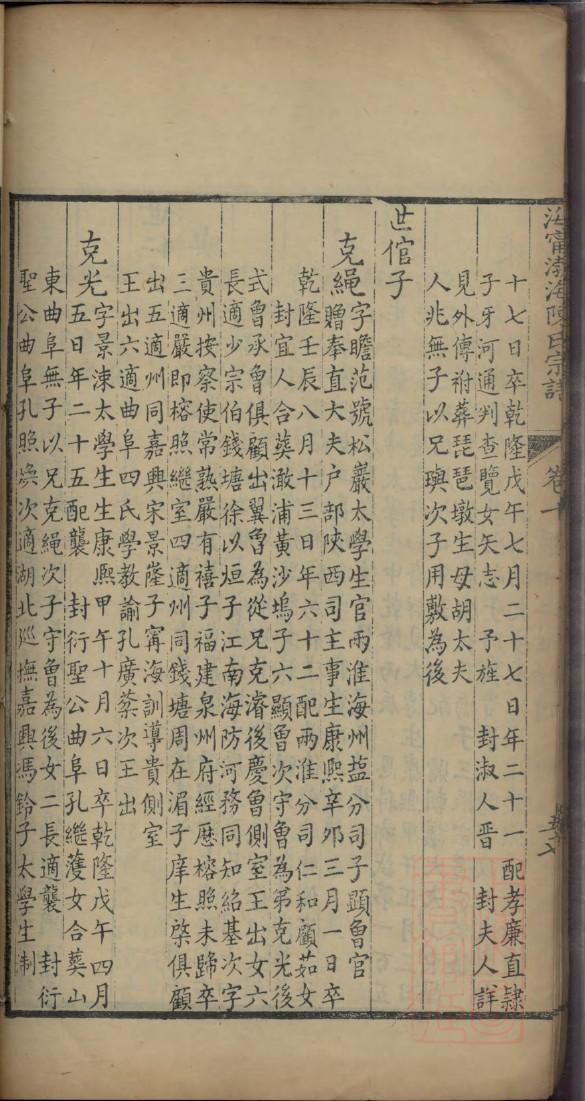 海寧渤海陳氏宗譜
卷十
十七日卒乾隆戊午七月二十七日年二十一 配孝廉直隷
子牙河通判查覽女矢志 予旌 封淑人晋 封夫人詳
見外傳祔葬琵琶墩生母胡太夫
人兆無子以兄璵次子用敷為後
世倌子
克繩字瞻范號松巖太學生官兩淮海州鹽分司子顕曾官
贈奉直大夫户部陕西司主事生康熙辛夘三月一日卒
乾隆壬辰八月十三日年六十二配兩淮分司仁和顧茹女
封宜人合葬澉浦黄沙塢子六顯曾次守曾為弟克光後
式曾承曾俱顧出翼曾為從兄克濬後慶曾側室王出女六
長適少宗伯錢塘徐以烜子江南海防河務同知紹基次字
貴州按察使常熟嚴有禧子福建泉州府經歴榕照未歸卒
三適嚴即榕照繼室四適州同錢塘周在湄子庠生棨俱顧
出五適州同嘉興宋景㒞子寗海訓導貴側室
王出六適曲阜四氏學教諭孔廣棻次王出
克光字景涑太學生生康熙甲午十月六日卒乾隆戊午四月
五日年二十五配襲 封衍聖公曲阜孔繼濩女合葬山
東曲阜無子以兄克繩次子守曾為後女二長適襲 封衍
聖公曲阜孔照煥次適湖北廵撫嘉興馮鈐子太學生淛